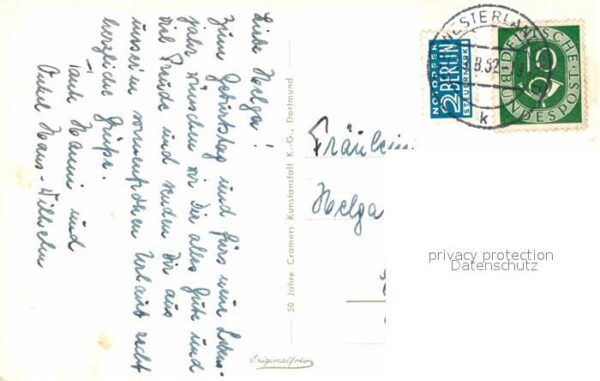 Liebe Helga!
Zum Geburtstag und fürs neue Lebens-
jahr wünschen wir Dir alles Gute und
viel Freude und senden Dir aus
unserem sonnenfrohen Urlaub recht
herzliche Grüße.
Tante Hanni und
Onkel Hans-Wilhelm
50 Jahre Cramers Kunstanstalt K.-G., Dortmund
Originalfoto
NOTOPFER
2 BERLIN
STEUERMARKE
WESTERLAND
8.52
k
DEUTSCHE
BUNDESPOST
10
Fräulein
Helga
privacy protection
Datenschutz